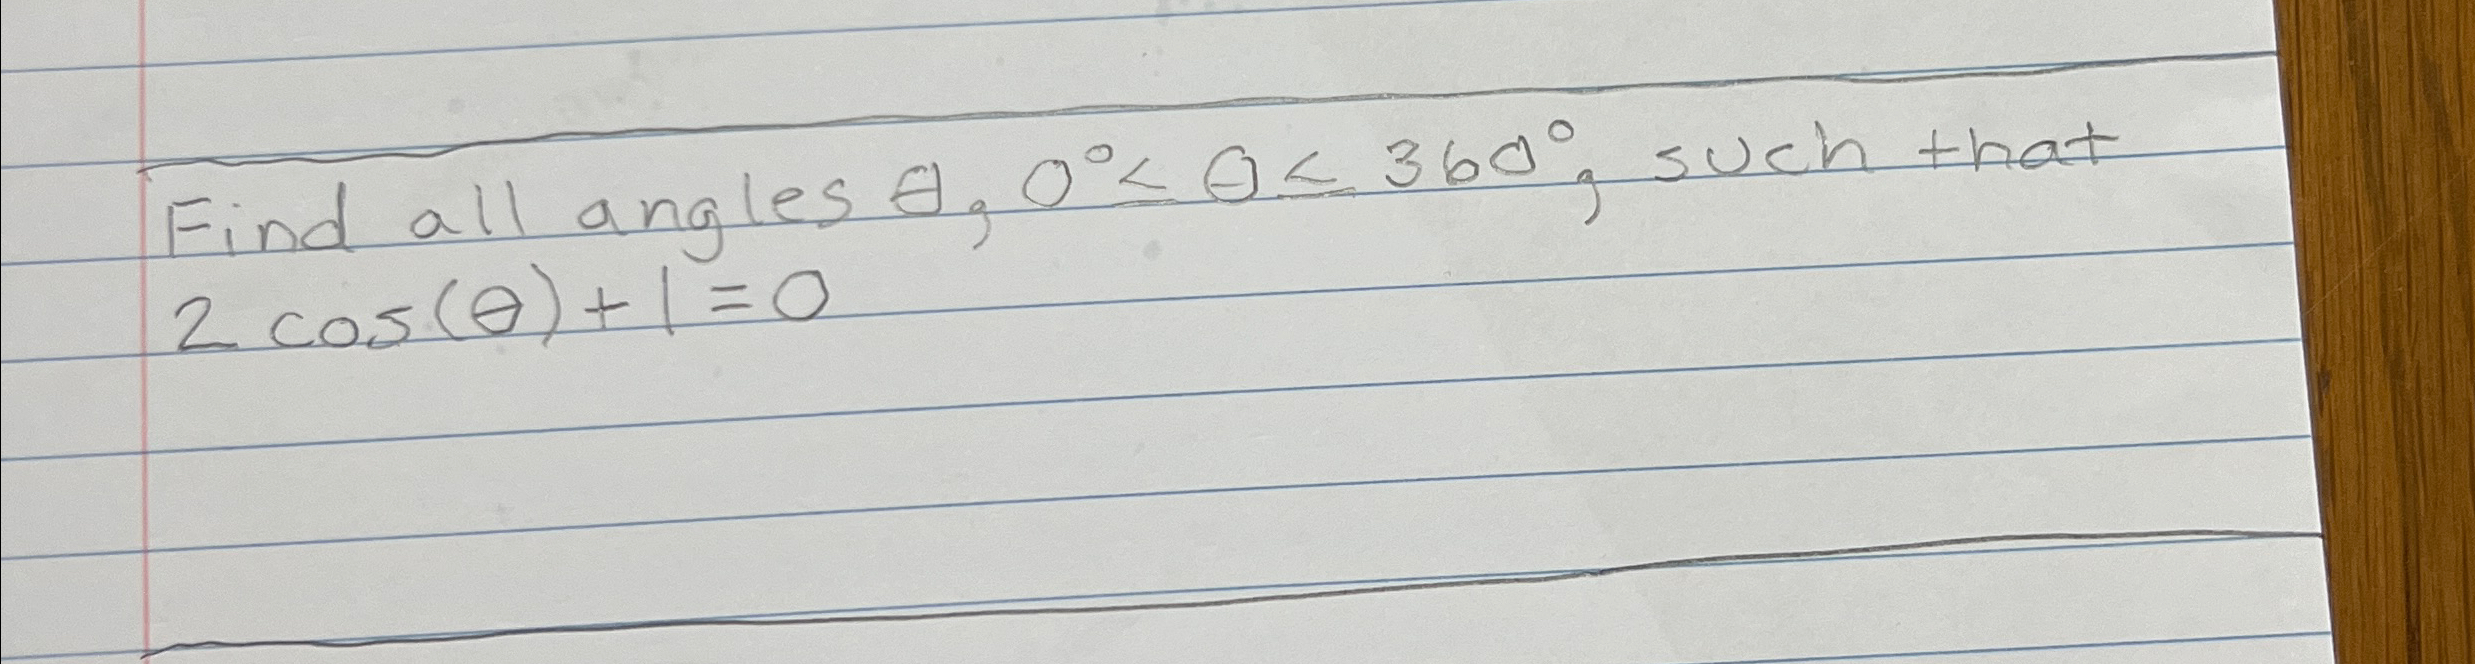 Find all angles θ, 0° ≤ θ ≤ 360°, such that
2 cos(θ) + 1 = 0